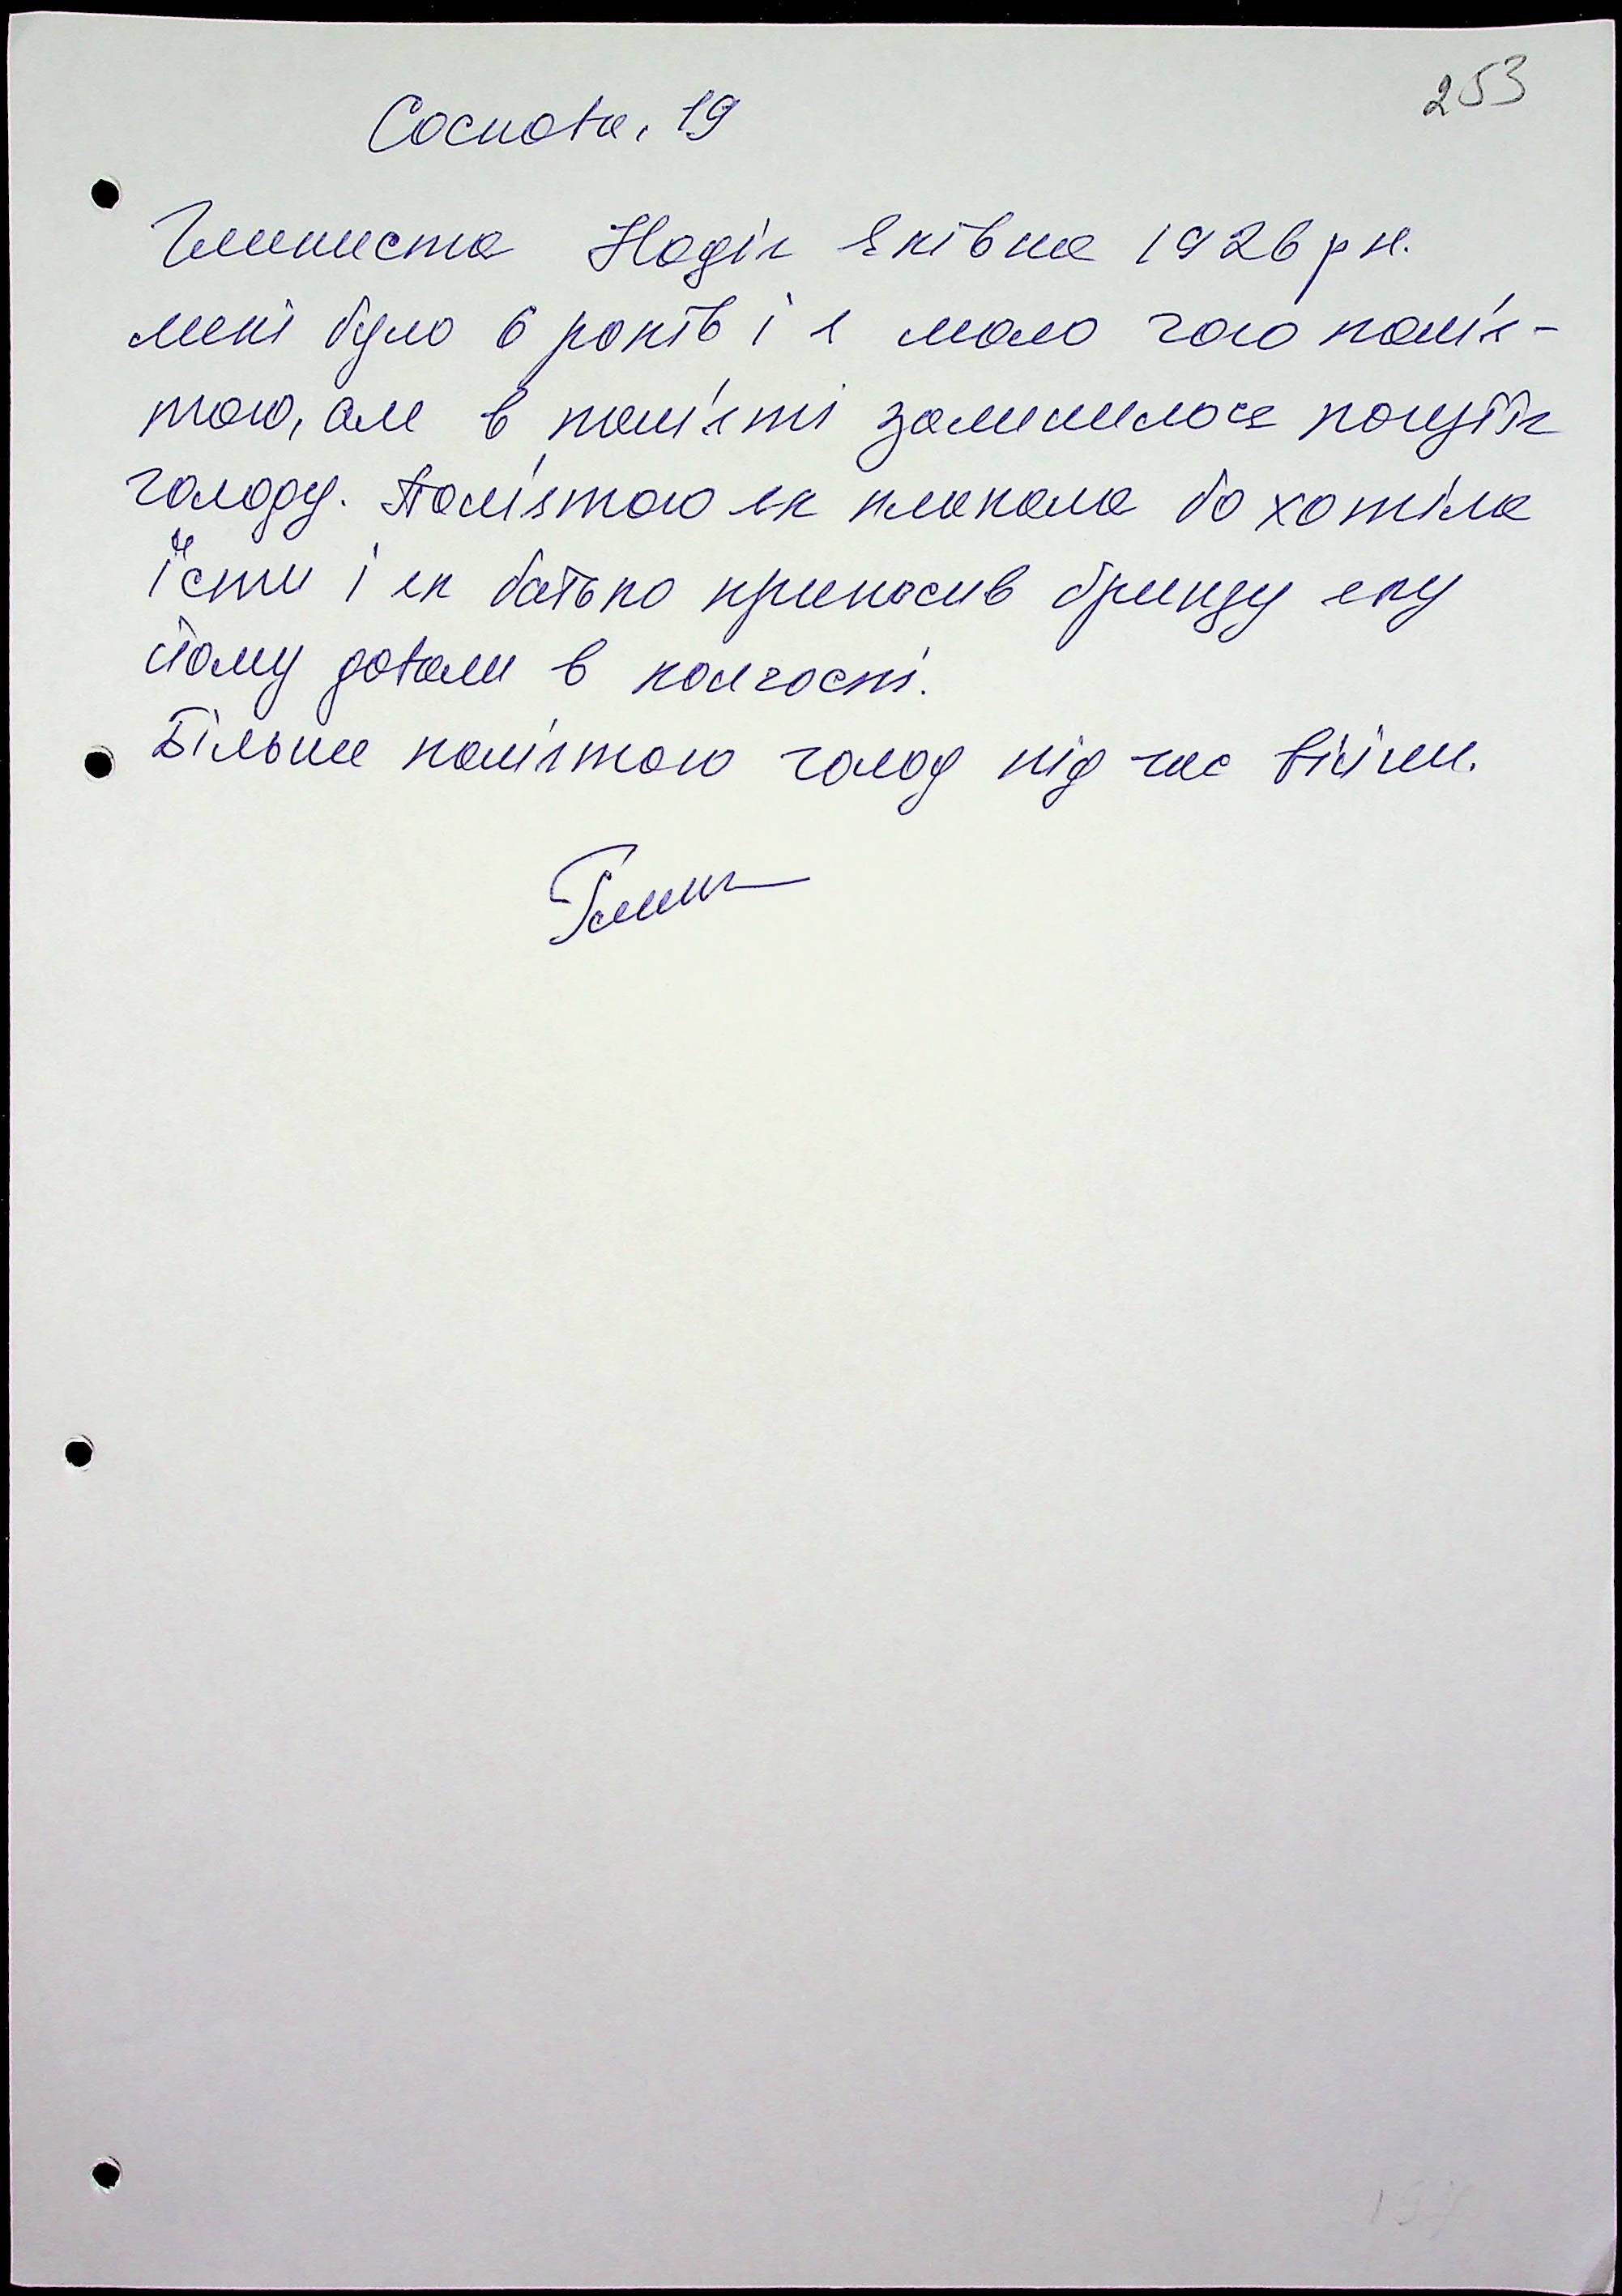 253
Соснова, 19
Глиниста Надія Яківна 1926 р н.
мені було 6 років і я мало чого пам'я-
таю, але в пам'яті залишилося почуття
голоду. Пам'ятаю як плакала бо хотіла
їсти і як батько приносив бринзу яку
йому давали в колгоспі.
Більше пам'ятаю голод під час війни.